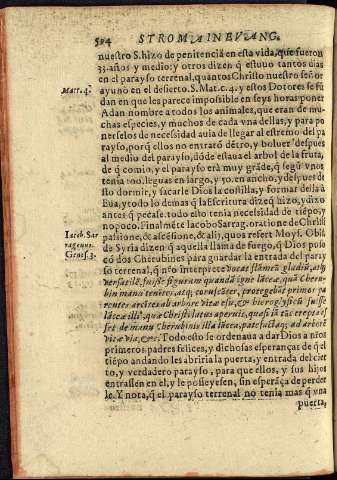 524 STROMA IN EVANG.
nuestro S. hizo de penitencia en esta vida, que fueron
33. años y medio: y otros dizen q̃ estuuo tantos dias
en el parayso terrenal, quantos Christo nuestro señor
Matt. 4. ayuno en el desierto. S. Mat. c. 4. y estos Dotores se fũ
dan en que les parece impossible en seys horas poner
Adan nombre a todos los animales, que eran de mu-
chas especies, y muchos de cada vna dellas, y para po
nerselos de necessidad auia de llegar al estremo del pa
rayso, porq̃ ellos no entrarō dētro, y boluer despues
al medio del parayso, dōde estaua el arbol de la fruta,
de q̃ comio, y el parayso era muy grāde, q̃ segũ vnos
tenia 100. leguas en largo, y 70. en ancho, y despues de
sto dormir, y sacarle Dios la costilla, y formar della à
Eua, y todo lo demas q̃ la Escritura dize q̃ hizo, y dixo
antes q̃ pecasse. todo esto tenia necessidad de tiēpo, y
Iacob. Sar no poco. Final mēte Iacobo Sarrag. oratione de Christi
ragenus. passione, & ascēsione, & alij, quos refert Moys. Obis.
Genes. 3. de Syria dizen q̃ aquella llama de fuego, q̃ Dios puso
cō dos Cherubines para guardar la entrada del paray
so terrenal, q̃ nr̃o interprete vocat flāmeũ gladiũ, atq;
versatilē, fuisse figuram quandā igne lāceæ, quā Cheru-
bin manu tenēret, atq; coruscāter, protegebāt primos pa
rentes arcēre ab arbore vitæ esse, & hieroglyficũ fuisse
lāceæ illi', quæ Christi latus aperuit, quasi iā tũc erepta es
set de manu Cherubinis illa lācea, patefactaq; ad arborē
vitæ via, &c. Todo esto se ordenaua a dar Dios a nr̃os
primeros padres felices, y dichosas esperanças de q̃ el
tiēpo andando les abriria la puerta, y entrada del cier
to, y verdadero parayso, para que ellos, y sus hijos
entrassen en el, y le posseyessen, sin esperāça de perder
le. Y nota, q̃ el parayso terrenal no tenia mas q̃ vna
puerta,